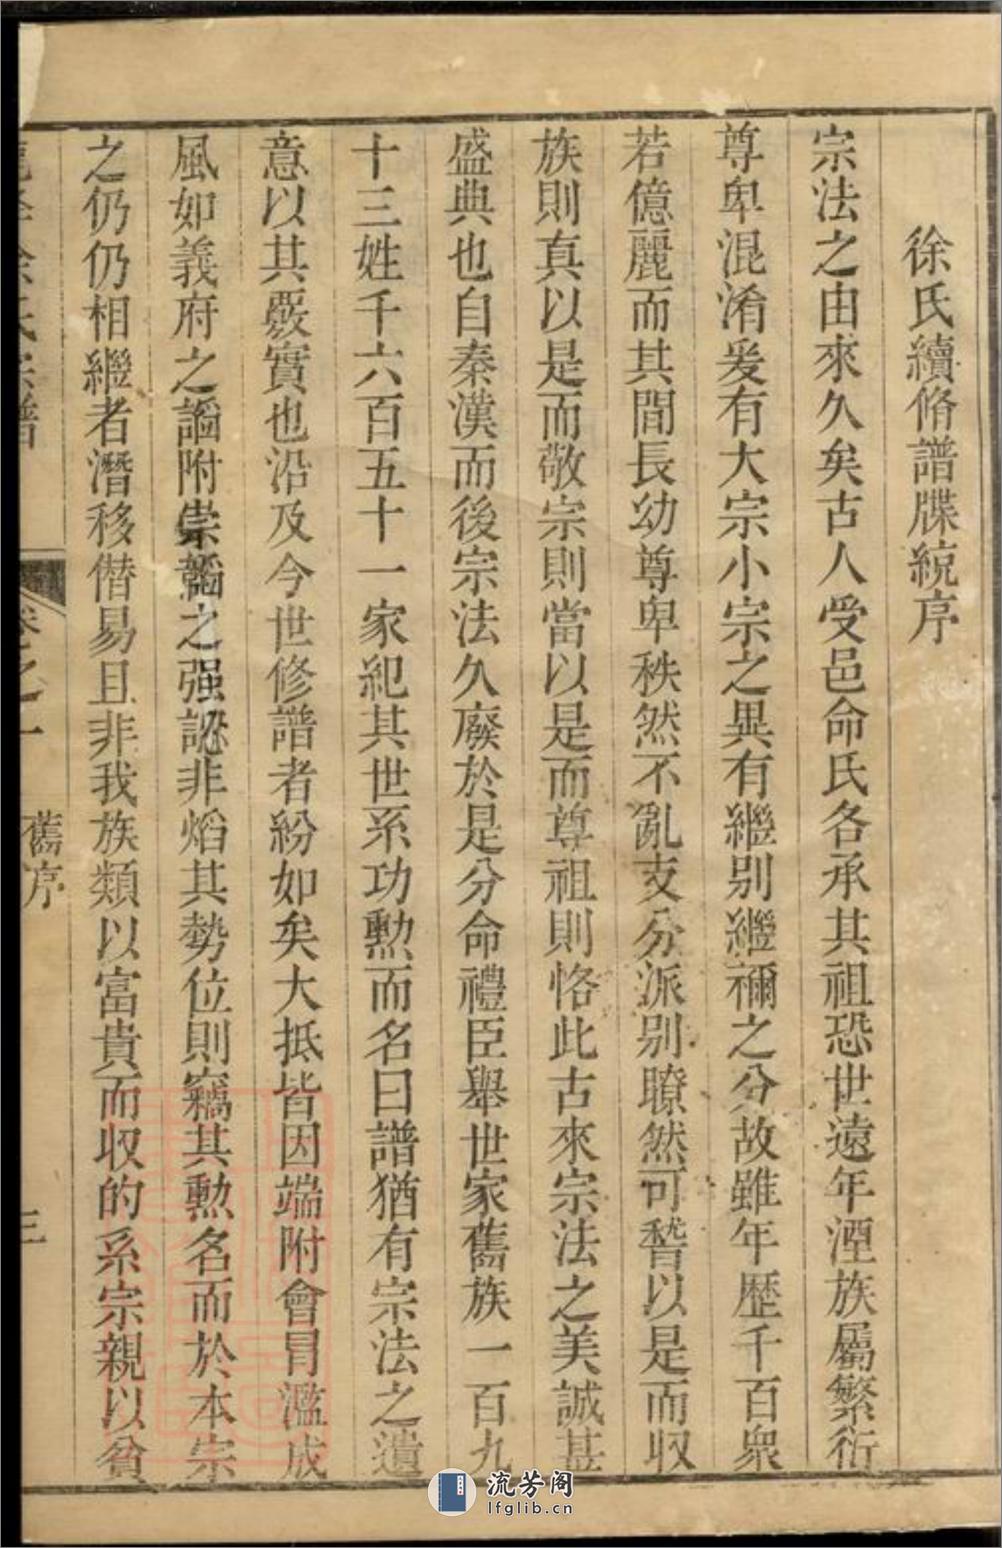 徐氏續脩譜牒統序
宗法之由來久矣古人受邑命氏各承其祖恐世遠年湮族屬繁衍
尊卑混淆爰有大宗小宗之異有繼别繼禰之分故雖年歷千百衆
若億麗而其間長幼尊卑秩然不亂支分派别瞭然可稽以是而収
族則真以是而敬宗則當以是而尊祖則恪此古來宗法之美誠甚
盛典也自秦漢而後宗法久廢於是分命禮臣舉世家舊族一百九
十三姓千六百五十一家紀其世系功勲而名曰譜猶有宗法之遺
意以其覈實也沿及今世修譜者紛如矣大抵皆因端附會冒濫成
風如義府之謳附崇韜之强認非熖其勢位則竊其勲名而於本宗
之仍仍相繼者潛移僭易且非我族類以富貴而収的系宗親以貧
徐氏宗譜
卷之一
舊序
三
流芳阁
lfglib.cn